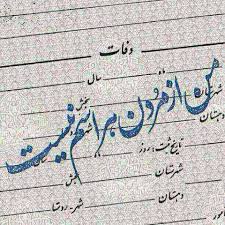 وفات
سال
من از مردن هراسم نیست
شهرستان
بخش
دهستان
تاریخ ثبت: روز
شهرستان
بخش
دهستان
شهر - روستا